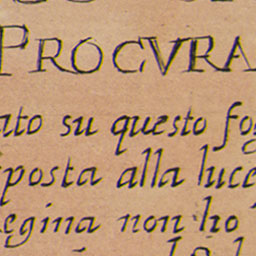 PROCVRA
ato su questo fog
posta alla luce
egina non ho